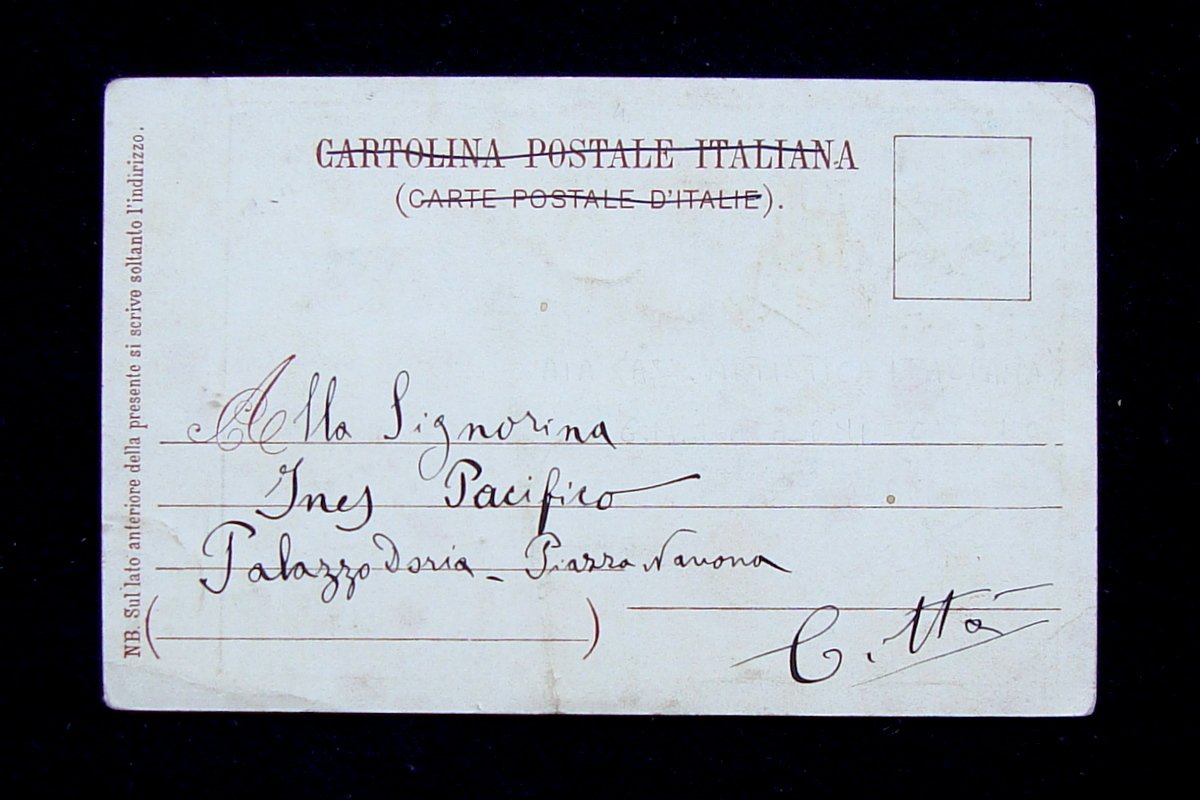 CARTOLINA POSTALE ITALIANA
(CARTE POSTALE D'ITALIE).
NB. Sul lato anteriore della presente si scrive soltanto l'indirizzo.
Alla Signorina
Ines Pacifico
Palazzo Doria - Piazza Navona
Città